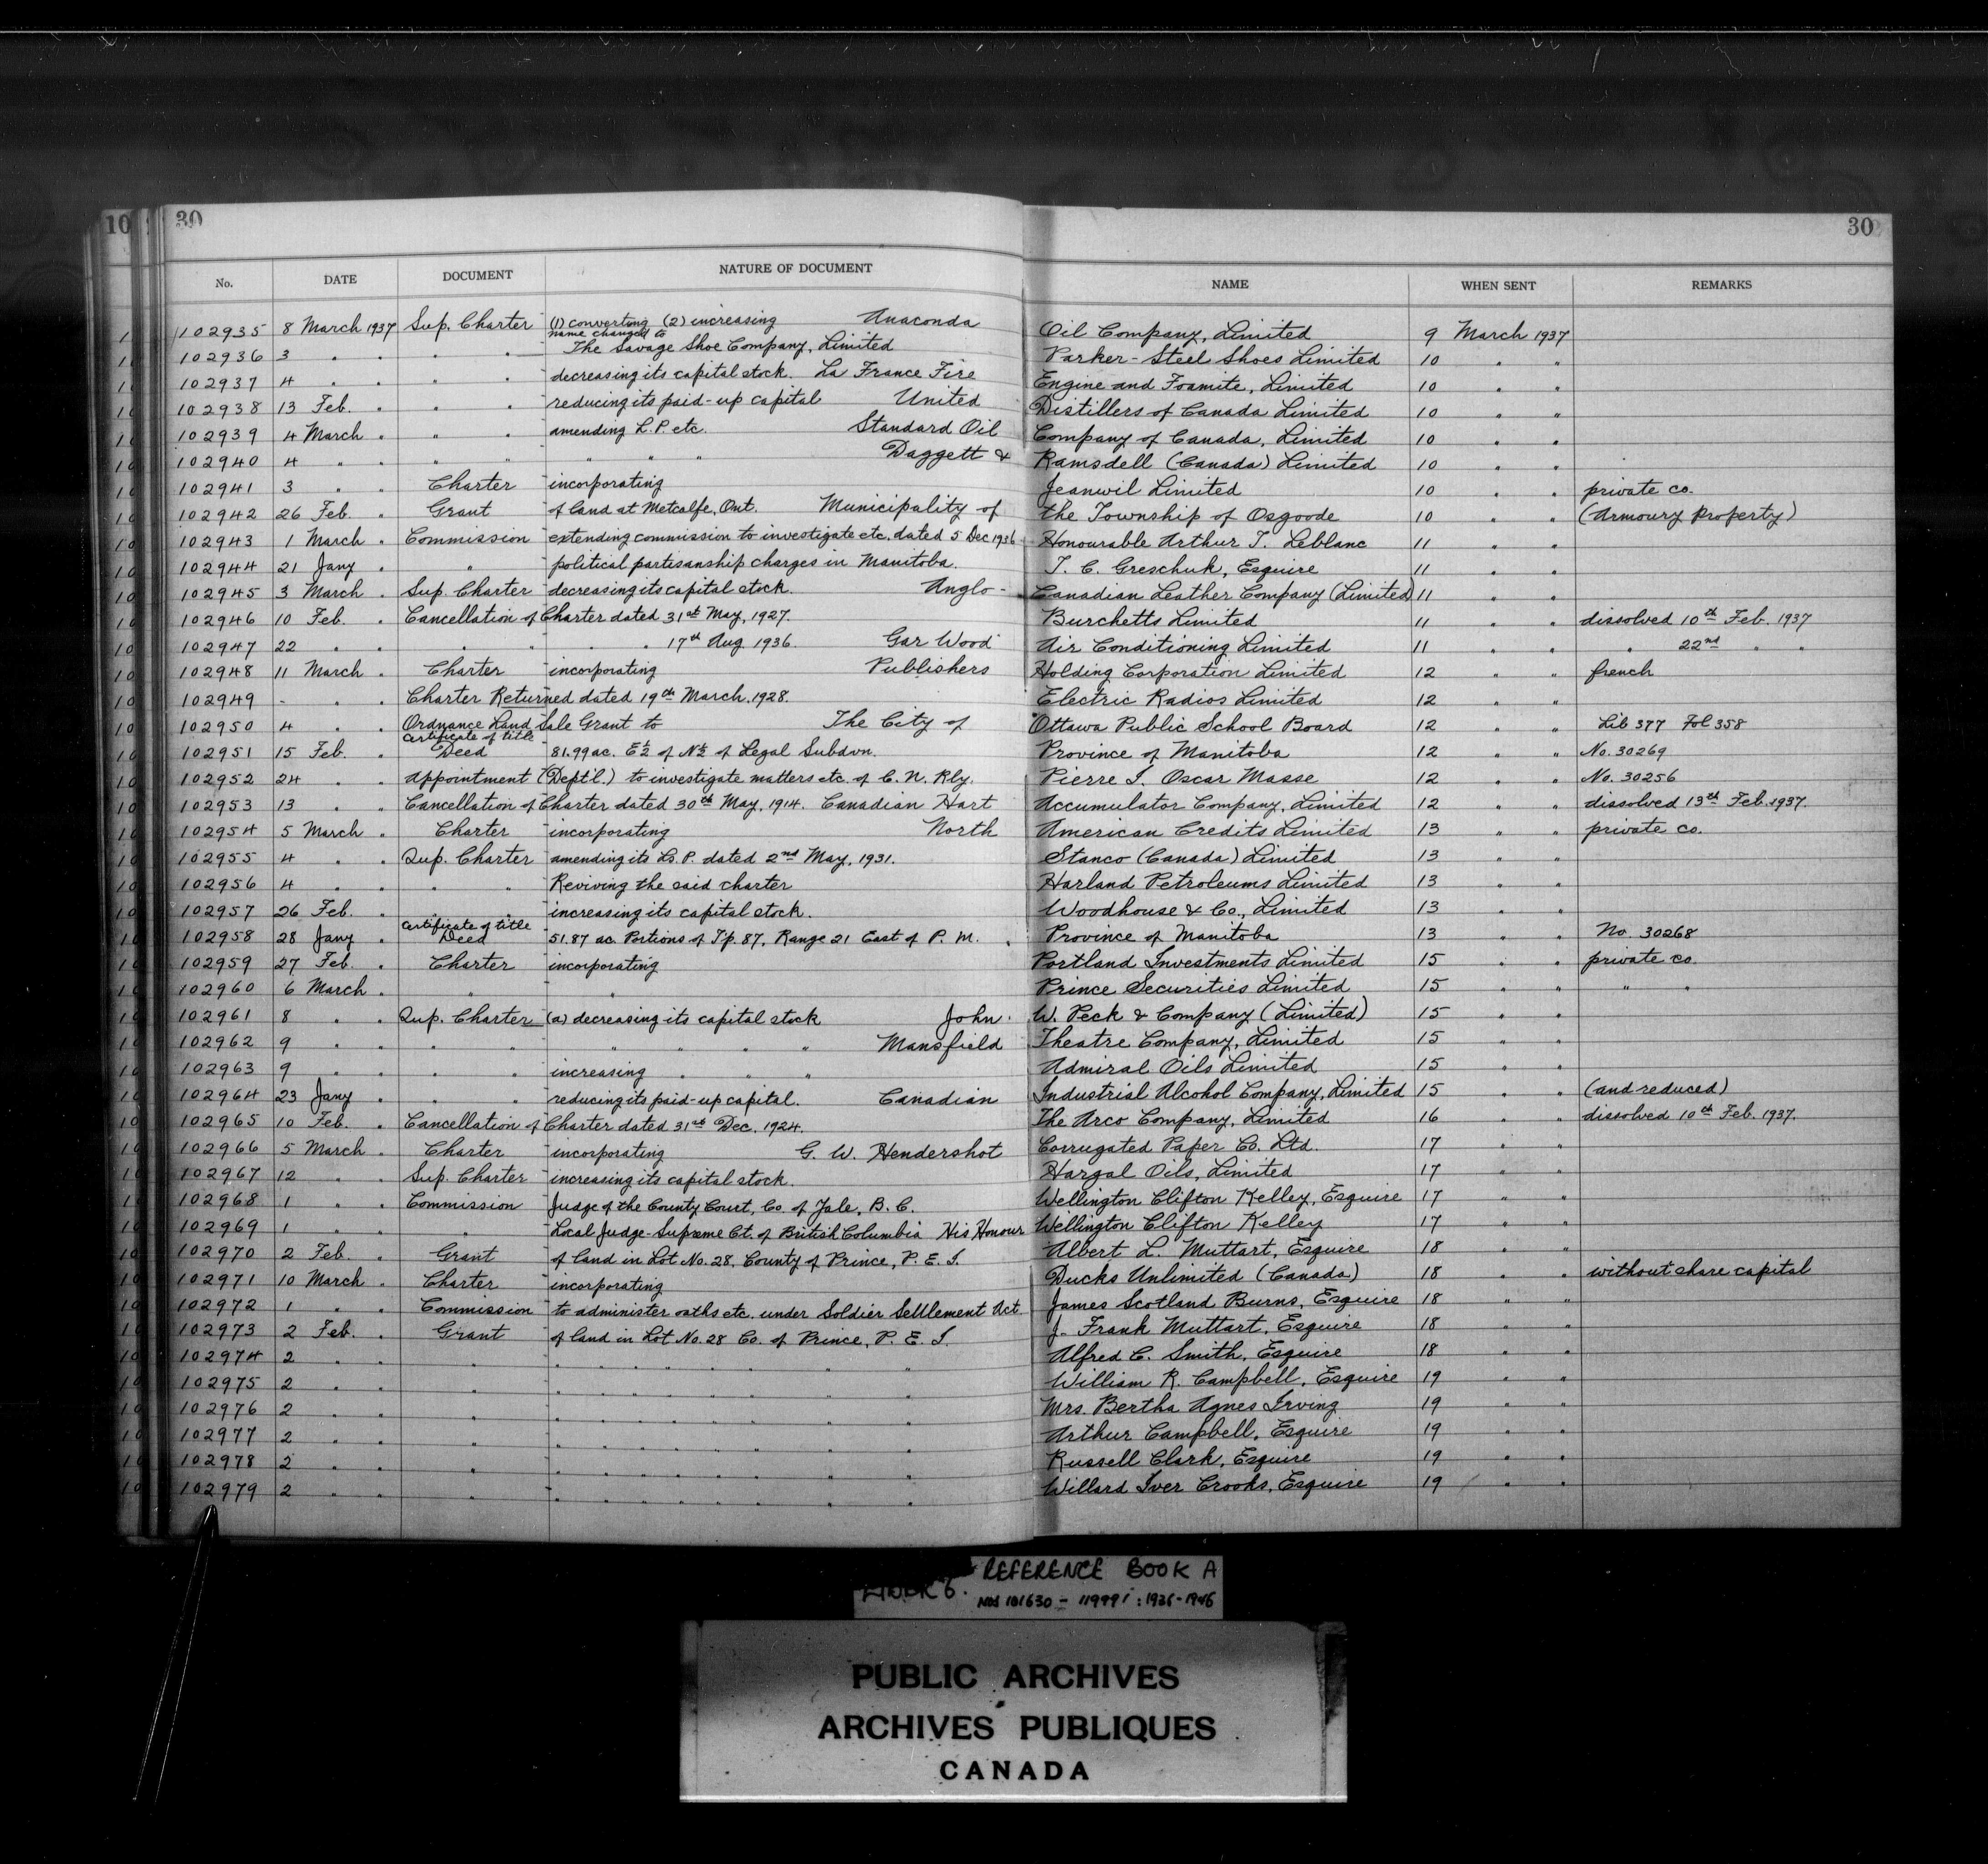 30 30
No. DATE DOCUMENT NATURE OF DOCUMENT NAME WHEN SENT REMARKS
102935 8 March 1937 Sup. Charter (1) converting (2) increasing Anaconda Oil Company, Limited 9 March 1937
name changed to
102936 3 " " " " The Savage Shoe Company, Limited Parker-Steel Shoes Limited 10 " "
102937 4 " " " " decreasing its capital stock. La France Fire Engine and Foamite, Limited 10 " "
102938 13 Feb. " " " reducing its paid-up capital United Distillers of Canada Limited 10 " "
102939 4 March " " " amending L.P. etc. Standard Oil Company of Canada, Limited 10 " "
102940 4 " " " " " " " Daggett & Ramsdell (Canada) Limited 10 " "
102941 3 " " Charter incorporating Jeanwil Limited 10 " " private co.
102942 26 Feb. " Grant of land at Metcalfe, Ont. Municipality of the Township of Osgoode 10 " " (Armoury Property)
102943 1 March " Commission extending commission to investigate etc. dated 5 Dec 1936 Honourable Arthur T. Leblanc 11 " "
102944 21 Jany " " political partisanship charges in Manitoba. T. C. Greschuk, Esquire 11 " "
102945 3 March " Sup. Charter decreasing its capital stock. Anglo- Canadian Leather Company (Limited) 11 " "
102946 10 Feb. " Cancellation of Charter dated 31st May, 1927. Burchetts Limited 11 " " dissolved 10th Feb. 1937
102947 22 " " " " " " 17th Aug 1936. Gar Wood Air Conditioning Limited 11 " " " 22nd " "
102948 11 March " Charter incorporating Publishers Holding Corporation Limited 12 " " french
102949 - " " Charter Returned dated 19th March, 1928. Electric Radios Limited 12 " "
102950 4 " " Ordnance Land Sale Grant to The City of Ottawa Public School Board 12 " " Lib 377 Fol 358
certificate of title
102951 15 Feb. " Deed 81.99 ac. E½ of N½ of Legal Subdvn. Province of Manitoba 12 " " No. 30269
102952 24 " " Appointment (Dept'l.) to investigate matters etc. of C. N. Rly. Pierre I. Oscar Masse 12 " " No. 30256
102953 13 " " Cancellation of Charter dated 30th May, 1914. Canadian Hart Accumulator Company, Limited 12 " " dissolved 13th Feb. 1937.
102954 5 March " Charter incorporating North American Credits Limited 13 " " private co.
102955 4 " " Sup. Charter amending its Ls. P. dated 2nd May, 1931. Stanco (Canada) Limited 13 " "
102956 4 " " " " Reviving the said charter Harland Petroleums Limited 13 " "
102957 26 Feb. " " " increasing its capital stock. Woodhouse & Co., Limited 13 " "
certificate of title
102958 28 Jany " Deed 51.87 ac. Portions of Tp. 87, Range 21 East of P. M. Province of Manitoba 13 " " No 30268
102959 27 Feb. " Charter incorporating Portland Investments Limited 15 " " private co.
102960 6 March " " " Prince Securities Limited 15 " " " "
102961 8 " " Sup. Charter (a) decreasing its capital stock John W. Peck & Company (Limited) 15 " "
102962 9 " " " " " " " " Mansfield Theatre Company, Limited 15 " "
102963 9 " " " " increasing " " " Admiral Oils Limited 15 " "
102964 23 Jany " " " reducing its paid-up capital. Canadian Industrial Alcohol Company, Limited 15 " " (and reduced)
102965 10 Feb. " Cancellation of Charter dated 31st Dec. 1924. The Arco Company, Limited 16 " " dissolved 10th Feb. 1937.
102966 5 March " Charter incorporating G. W. Hendershot Corrugated Paper Co. Ltd. 17 " "
102967 12 " " Sup. Charter increasing its capital stock. Hargal Oils, Limited 17 " "
102968 1 " " Commission Judge of the County Court, Co. of Yale, B. C. Wellington Clifton Kelley, Esquire 17 " "
102969 1 " " " Local Judge-Supreme Ct. of British Columbia His Honour Wellington Clifton Kelley 17 " "
102970 2 Feb. " Grant of land in Lot No. 28, County of Prince, P. E. I. Albert L. Muttart, Esquire 18 " "
102971 10 March " Charter incorporating Ducks Unlimited (Canada) 18 " " without share capital
102972 1 " " Commission to administer oaths etc. under Soldier Settlement Act James Scotland Burns, Esquire 18 " "
102973 2 Feb. " Grant of land in Lot No. 28 Co. of Prince, P. E. I. J. Frank Muttart, Esquire 18 " "
102974 2 " " " " " " " " " " " Alfred C. Smith, Esquire 18 " "
102975 2 " " " " " " " " " " " William R. Campbell, Esquire 19 " "
102976 2 " " " " " " " " " " " Mrs. Bertha Agnes Irving 19 " "
102977 2 " " " " " " " " " " " Arthur Campbell, Esquire 19 " "
102978 2 " " " " " " " " " " " Russell Clark, Esquire 19 " "
102979 2 " " " " " " " " " " " Willard Iver Crooks, Esquire 19 " "
REFERENCE BOOK A
NOS 101630 - 119991 : 1936-1946
PUBLIC ARCHIVES
ARCHIVES PUBLIQUES
CANADA